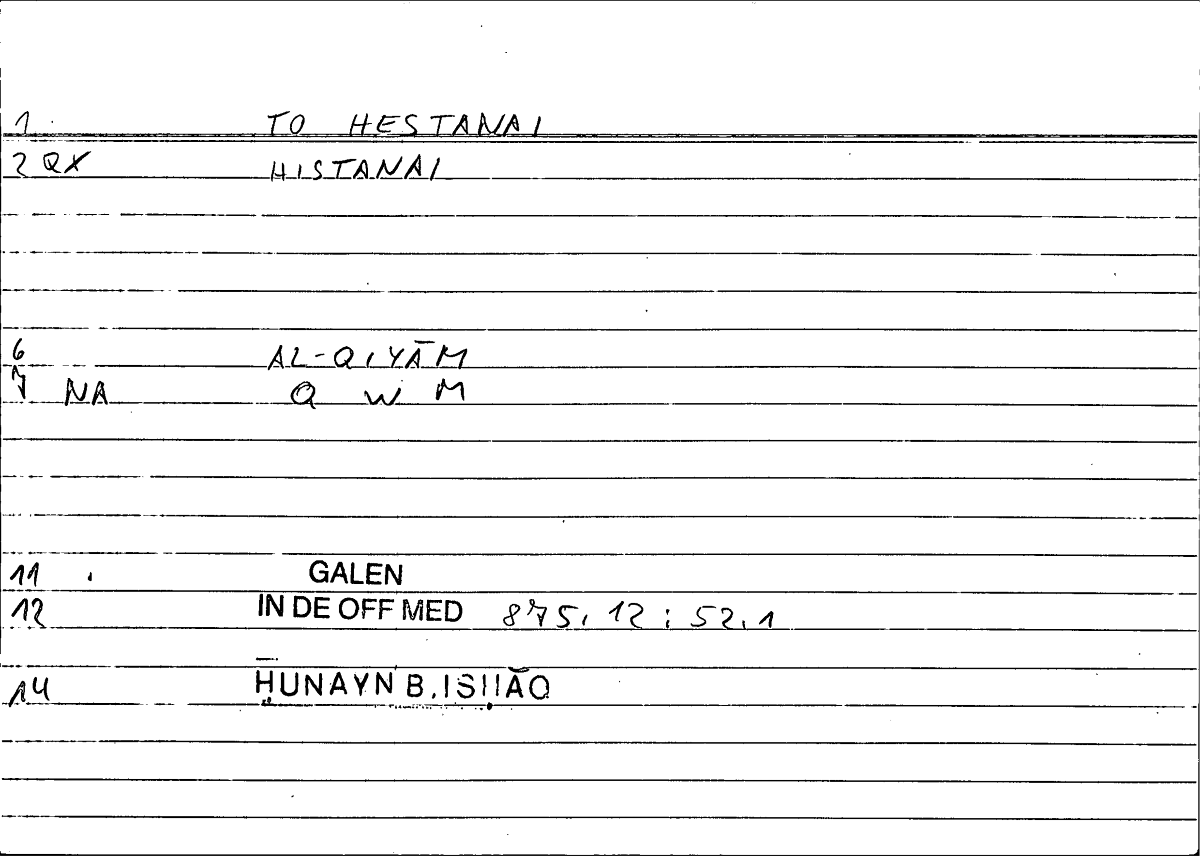 1 TO HESTANAI
2 QX HISTANAI
6 AL-QIYĀM
7 NA Q W M
11 GALEN
12 IN DE OFF MED 875,12 ; 52.1
14 ḤUNAYN B. ISḤĀQ